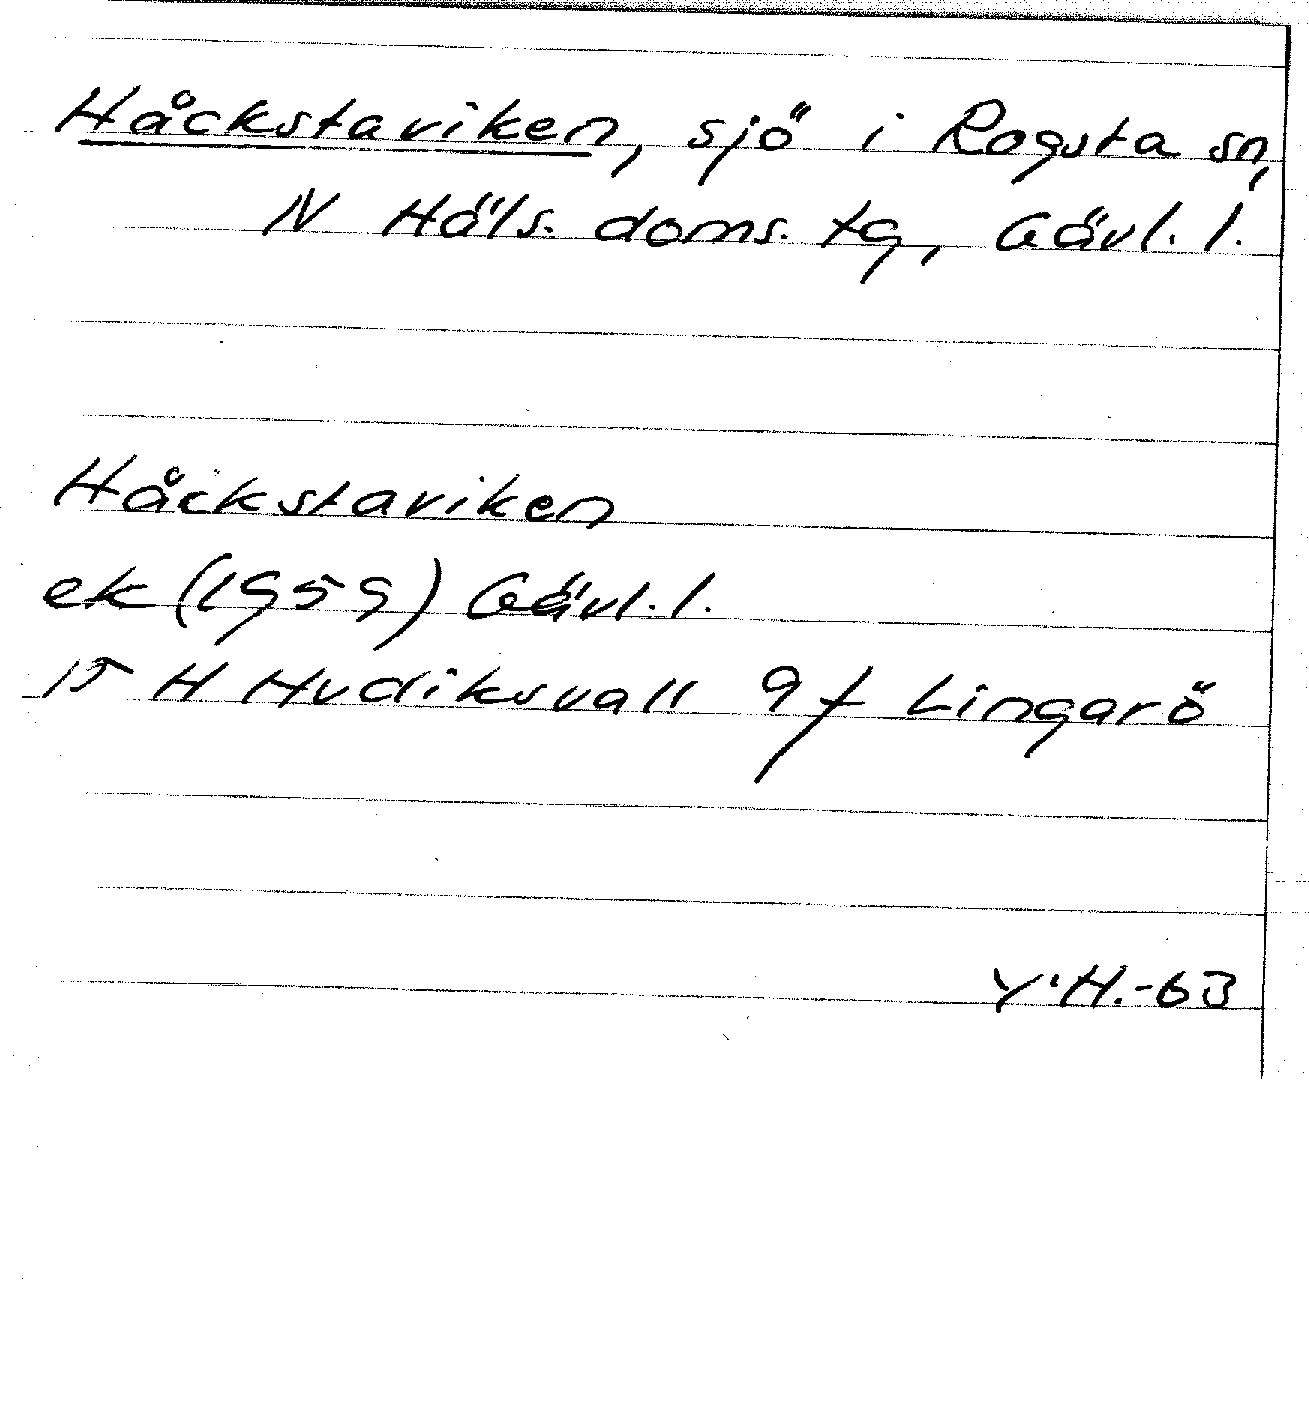 Håckstaviken, sjö i Rogsta sn,
N Häls. doms. tg, Gävl. l.
Håckstaviken
ek (1959) Gävl. l.
15 H Hudiksvall 9 f Lingarö
Y.H.-63